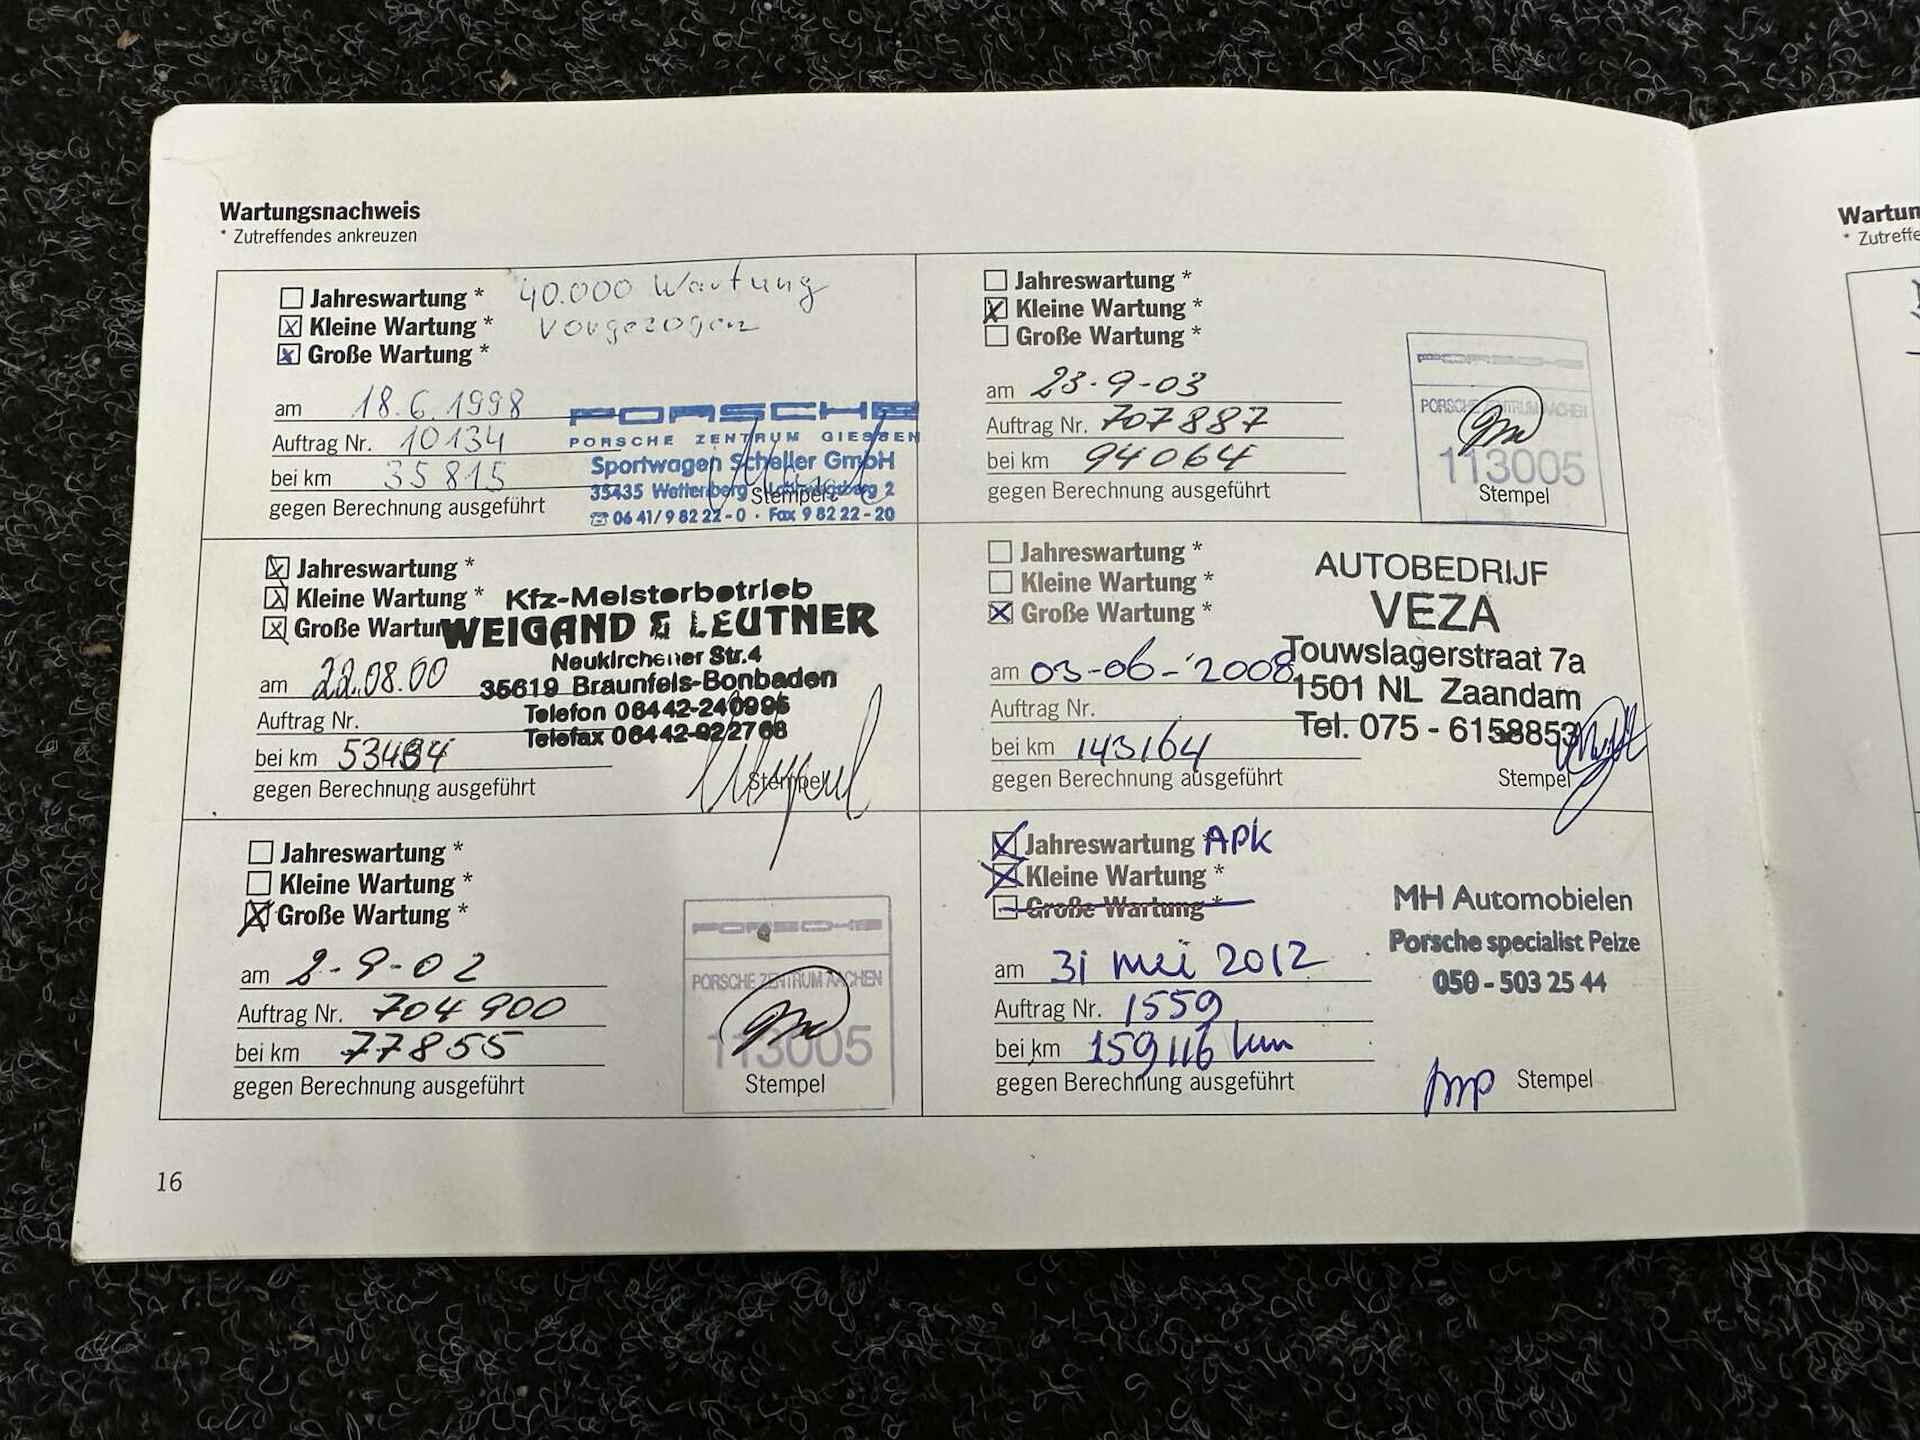 Wartungsnachweis
* Zutreffendes ankreuzen
Jahreswartung * 40.000 Wartung
Kleine Wartung * vorgezogen
Große Wartung *
am 18.6.1998
Auftrag Nr. 10134
bei km 35815
gegen Berechnung ausgeführt
PORSCHE
PORSCHE ZENTRUM GIESSEN
Sportwagen Scheller GmbH
35435 Wettenberg 2
Stempel
☎ 06 41/9 82 22-0 · Fax 9 82 22-20
Jahreswartung *
Kleine Wartung *
Große Wartung
am 22.08.00
Auftrag Nr.
bei km
gegen Berechnung ausgeführt
Kfz-Meisterbetrieb
WEIGAND & LEUTNER
Neukirchener Str.4
35619 Braunfels-Bonbaden
Telefon 06442-240995
Telefax 06442-922768
Stempel
Jahreswartung *
Kleine Wartung *
Große Wartung *
am 2-9-02
Auftrag Nr. 704900
bei km 77855
gegen Berechnung ausgeführt
PORSCHE
PORSCHE ZENTRUM AACHEN
113005
Stempel
Jahreswartung *
Kleine Wartung *
Große Wartung *
am 23-9-03
Auftrag Nr. 707887
bei km 94064
gegen Berechnung ausgeführt
PORSCHE
PORSCHE ZENTRUM AACHEN
113005
Stempel
Jahreswartung *
Kleine Wartung *
Große Wartung *
am 03-06-'2008
Auftrag Nr.
bei km 143164
gegen Berechnung ausgeführt
AUTOBEDRIJF
VEZA
Touwslagerstraat 7a
1501 NL Zaandam
Tel. 075 - 6158853
Stempel
Jahreswartung APK
Kleine Wartung *
Große Wartung *
am 31 mei 2012
Auftrag Nr. 1559
bei km 159116 km
gegen Berechnung ausgeführt
MH Automobielen
Porsche specialist Peize
050 - 503 25 44
Stempel
16
Wartun
* Zutreffe